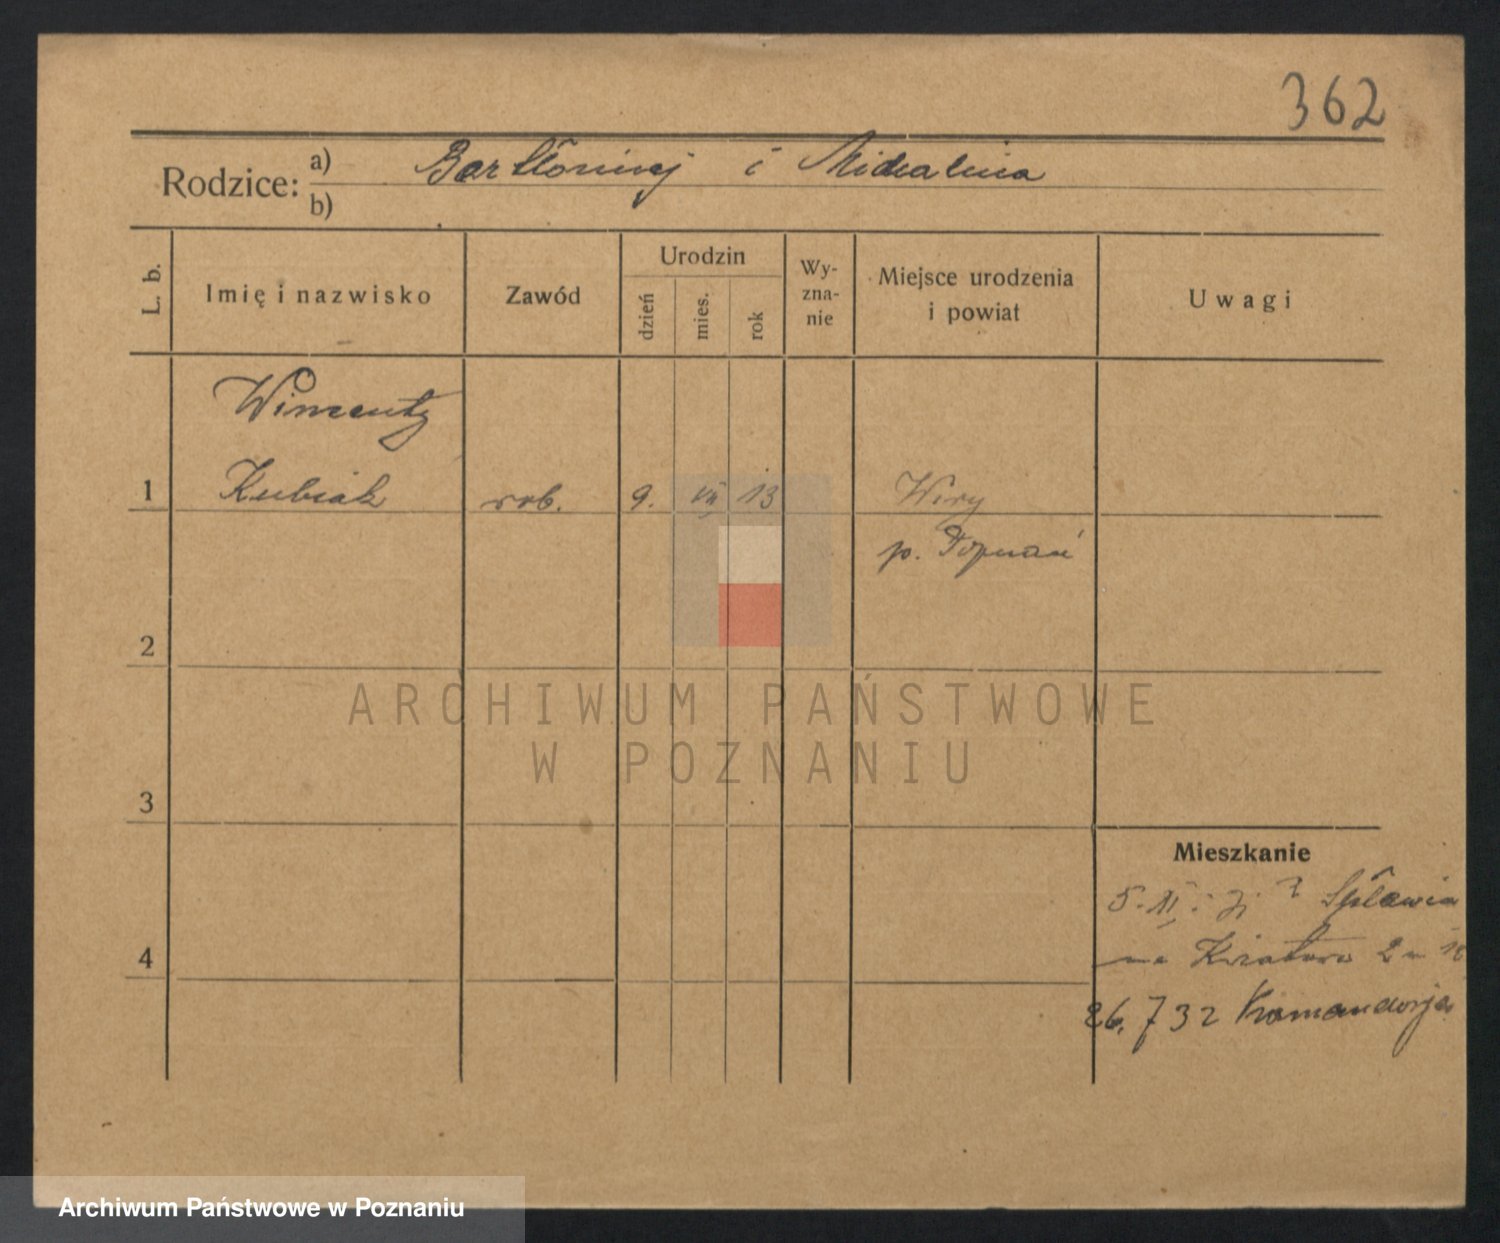 362
Rodzice: a) Bartłomiej i Michalina
b)
L. b. Imię i nazwisko Zawód Urodzin dzień mies. rok Wy-zna-nie Miejsce urodzenia i powiat Uwagi
Wincenty
1 Kubiak rob. 9. VII 13 Wiry
p. Poznań
2
ARCHIWUM PAŃSTWOWE
W POZNANIU
3
Mieszkanie
5. II Spławia
na 2 m
4
26. 7 32 Komandorja
Archiwum Państwowe w Poznaniu